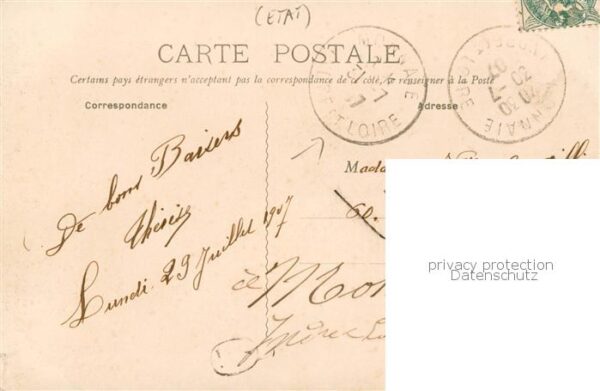 (ETAT)
CARTE POSTALE
Certains pays étrangers n'acceptent pas la correspondance de ce côté, se renseigner à la Poste
Correspondance
Adresse
De bons Baisers
Thérèse
Lundi 29 Juillet 1907
Mada
60.
à Mon
ET LOIRE
privacy protection
Datenschutz